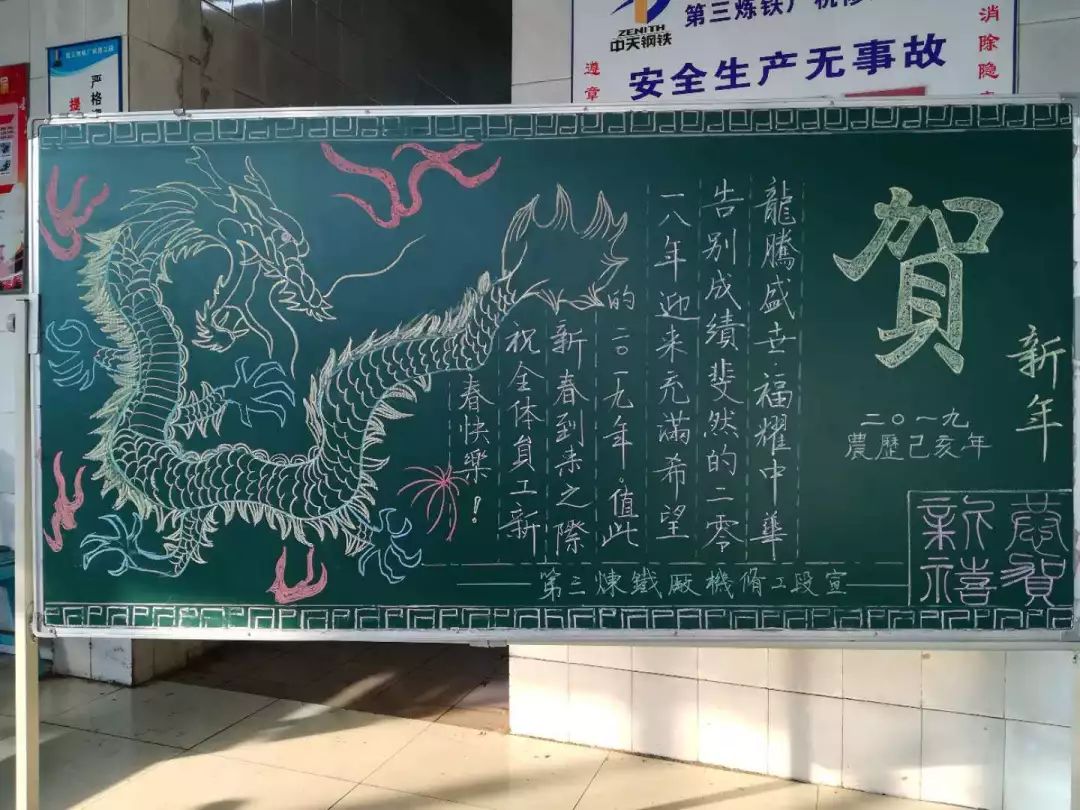 ZENITH
中天钢铁
第三炼铁厂机修
安全生产无事故
遵章
消除隐
严格
提
賀
新年
二〇一九
農歷己亥年
龍騰盛世·福耀中華
告别成績斐然的二零
一八年迎来充滿希望
的二〇一九年。值此
新春到来之際
祝全体員工新
春快樂!
第三煉鐵廠機脩工段宣
恭賀
新禧